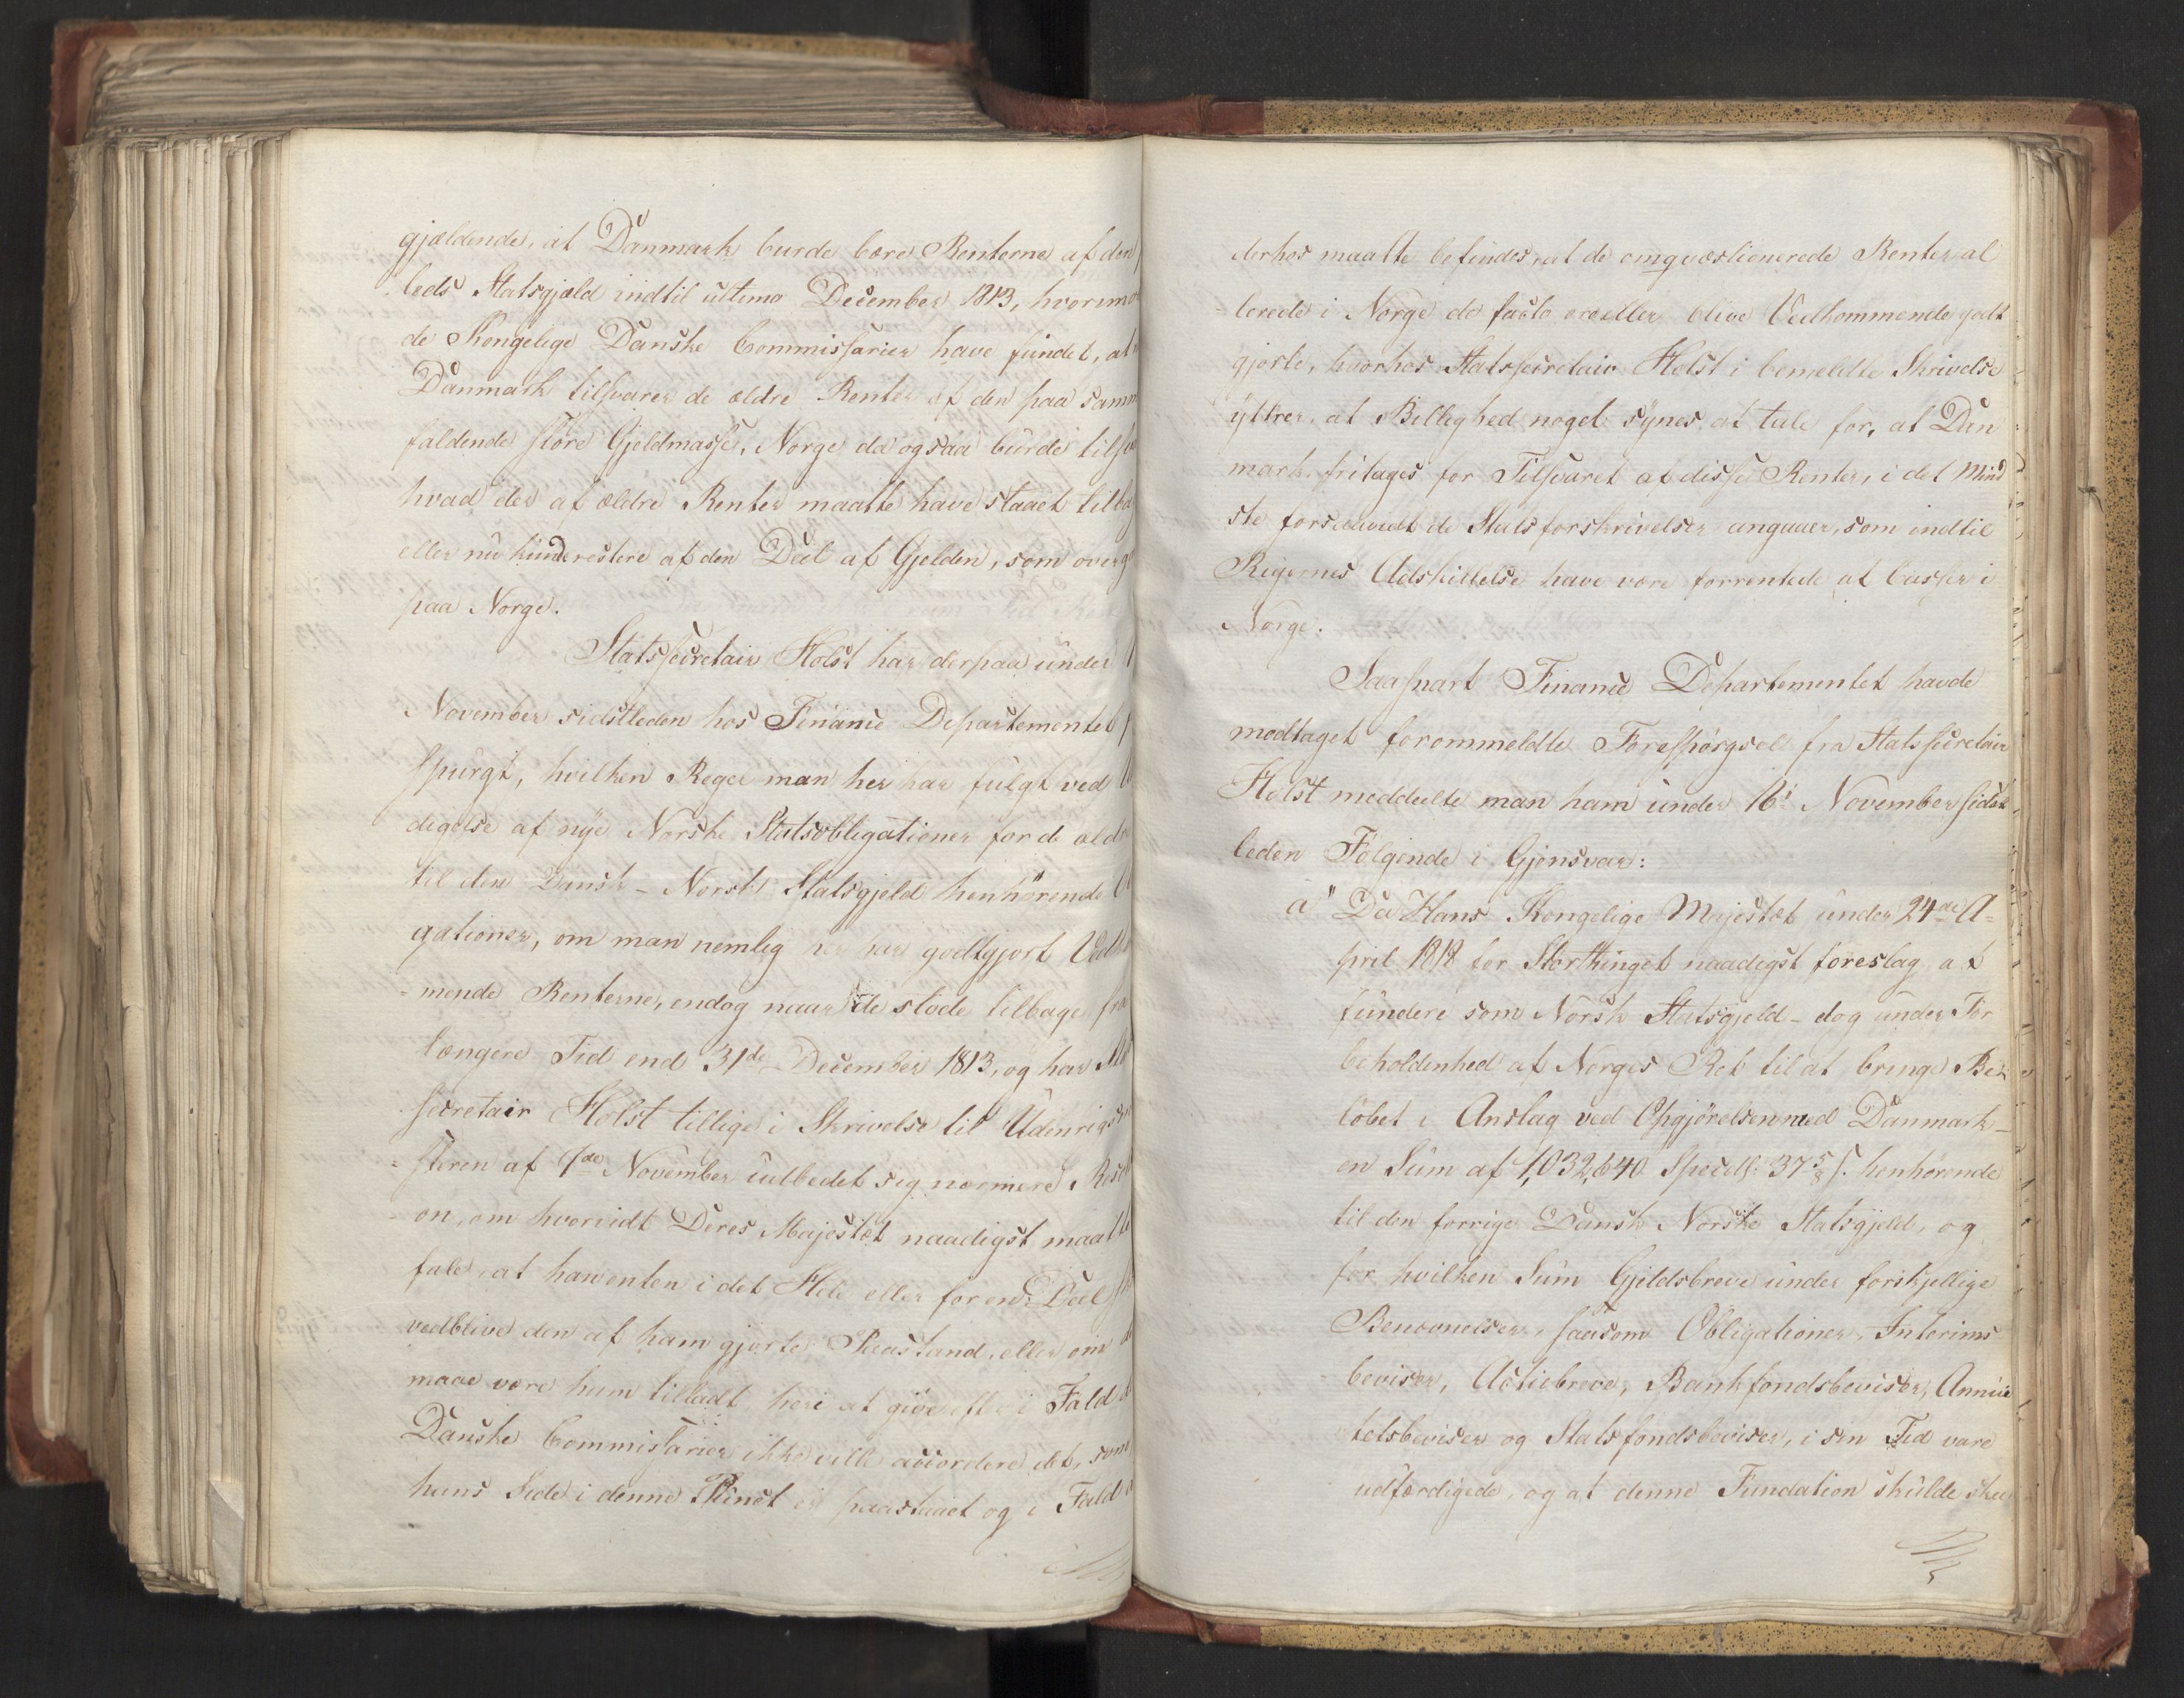 gjældende, at Danmark burde bære Renterne af den
leds Statsgjæld indtil ultimo December 1813, hvorimo
de Kongelige Danske Commissarier have fundet, at
Danmark tilsvarer de ældre Renter af den paa samm
faldende større Gjeldmasse, Norge da ogsaa burde tilsva
hvad der af ældre Renter maatte have staaet tilba
eller nu kunde restere af den Deel af Gjelden, som overg
paa Norge.
Statssecretair Holst har derpaa under
November sidstleden hos Finance Departementet
spurgt, hvilken Regel man her har fulgt ved
digelse af nye Norske Statsobligationer for de ældr
til den Dansk-Norske Statsgjeld henhørende
gationer, om man nemlig her har godtgjort Vedk
-mende Renterne, endog naar de stode tilbage fra
længere Tid end 31de December 1813, og har Stat
secretair Holst tillige i Skrivelse til Udenrigs
-steren af 9de November udbedet sig nærmere Res
on, om hvorvidt Deres Majestæt naadigst maatte
fale, at han enten i det Hele eller for en Deel
vedblive den af ham gjorte Paastand, eller om
maae være ham tilladt heri at give efter i Fald
Danske Commissarier ikke ville accordere det, som
hans Side i denne Punct er paastaaet og i Fald
derhos maatte befindes, at de omqvæstionerede Renter al
-lerede i Norge de facto ere eller blive Vedkommende godt
gjorte, hvorhos Statssecretair Holst i bemeldte Skrivelse
yttrer, at Billighed noget synes at tale for, at Dan
mark fritages for Tilsvaret af disse Renter, i det Mind
ste forsaavidt de Statsforskrivelser angaaer, som indtil
Rigernes Adskillelse have være forrentede af Casser i
Norge.
Saasnart Finance Departementet havde
modtaget forommeldte Forespørgsel fra Statssecretair
Holst meddeelte man ham under 16de November sidst
leden Følgende i Gjensvar:
a" Da Hans Kongelige Majestæt under 24de A-
pril 1818 for Storthinget naadigst foreslag at
fundere som Norsk Statsgjeld - dog under For
beholdenhed af Norges Ret til at bringe Be-
løbet i Anslag ved Opgjørelsen med Danmark -
en Sum af 1,032,640 Specd. 37 5/8 s. henhørende
til den forrige Dansk Norske Statsgjeld, og
for hvilken Sum Gjeldsbreve under forskjellige
Benævnelser, saasom Obligationer, Interims
beviser, Actiebreve, Bankfondsbeviser, Annui
tetsbeviser og Statsfondsbeviser, i sin Tid vare
udfærdigede, og at denne Fundation skulde skee